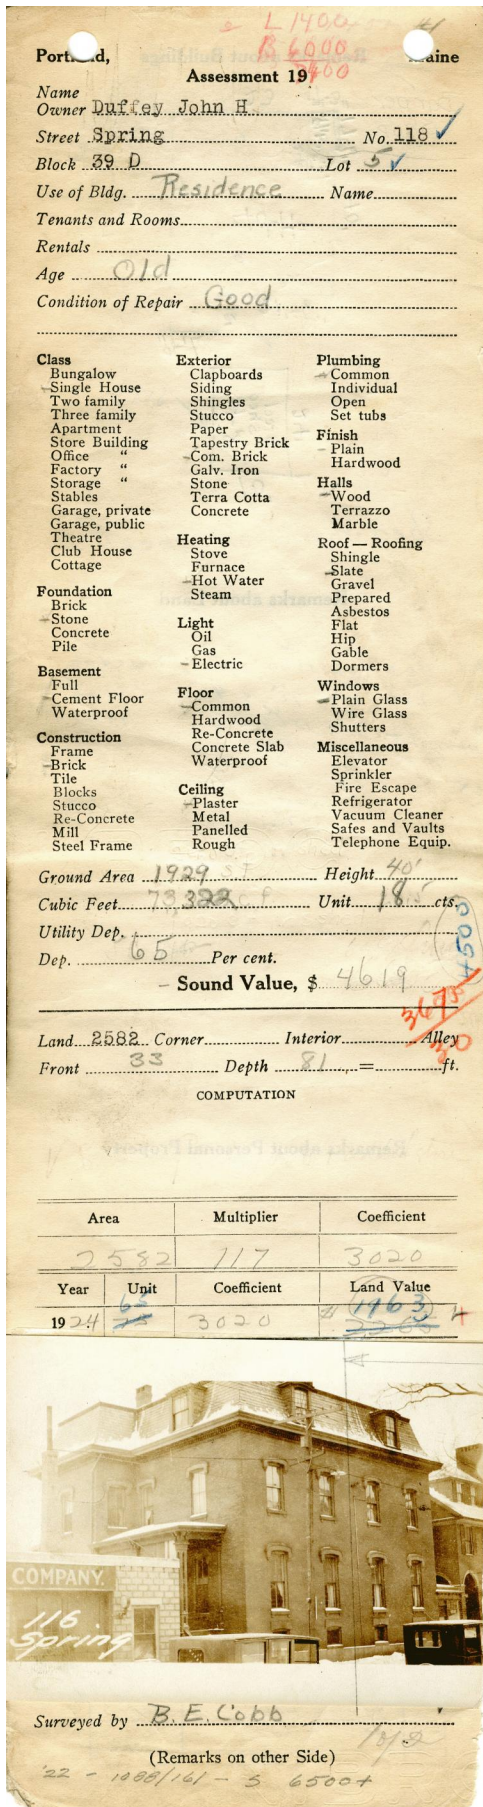 L 1400
B 6000
7400
Portland, Maine
Assessment 19
Name
Owner Duffey John H
Street Spring No. 118 ✓
Block 39 D Lot 5 ✓
Use of Bldg. Residence Name
Tenants and Rooms
Rentals
Age Old
Condition of Repair Good
Class
Bungalow
Single House
Two family
Three family
Apartment
Store Building
Office "
Factory "
Storage "
Stables
Garage, private
Garage, public
Theatre
Club House
Cottage
Foundation
Brick
Stone
Concrete
Pile
Basement
Full
Cement Floor
Waterproof
Construction
Frame
Brick
Tile
Blocks
Stucco
Re-Concrete
Mill
Steel Frame
Exterior
Clapboards
Siding
Shingles
Stucco
Paper
Tapestry Brick
Com. Brick
Galv. Iron
Stone
Terra Cotta
Concrete
Heating
Stove
Furnace
Hot Water
Steam
Light
Oil
Gas
Electric
Floor
Common
Hardwood
Re-Concrete
Concrete Slab
Waterproof
Ceiling
Plaster
Metal
Panelled
Rough
Plumbing
Common
Individual
Open
Set tubs
Finish
Plain
Hardwood
Halls
Wood
Terrazzo
Marble
Roof — Roofing
Shingle
Slate
Gravel
Prepared
Asbestos
Flat
Hip
Gable
Dormers
Windows
Plain Glass
Wire Glass
Shutters
Miscellaneous
Elevator
Sprinkler
Fire Escape
Refrigerator
Vacuum Cleaner
Safes and Vaults
Telephone Equip.
Ground Area 1929 S.F. Height 40'
Cubic Feet 73,322 c.f. Unit 18 cts.
Utility Dep.
4500
Dep. 65 Per cent.
Sound Value, $ 4619
3675
Land 2582 Corner Interior Alley
30
Front 33 Depth 81 = ft.
COMPUTATION
Area Multiplier Coefficient
2582 117 3020
Year Unit Coefficient Land Value
65 1963
1924 75 3020
COMPANY.
116
Spring
Surveyed by B. E. Cobb
(Remarks on other Side)
'22 - 1088/161 - S 6500+